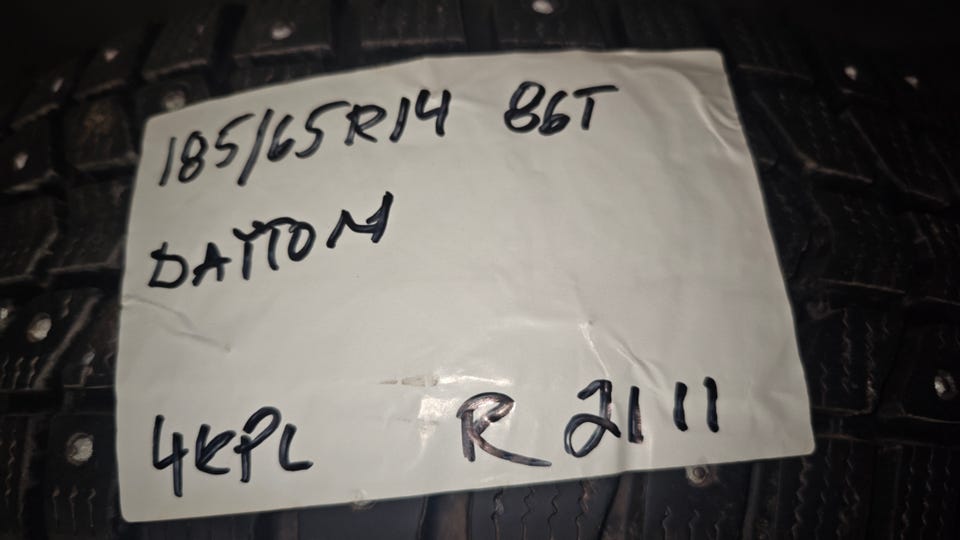 185/65R14 86T
DAYTON
4KPL R 2111